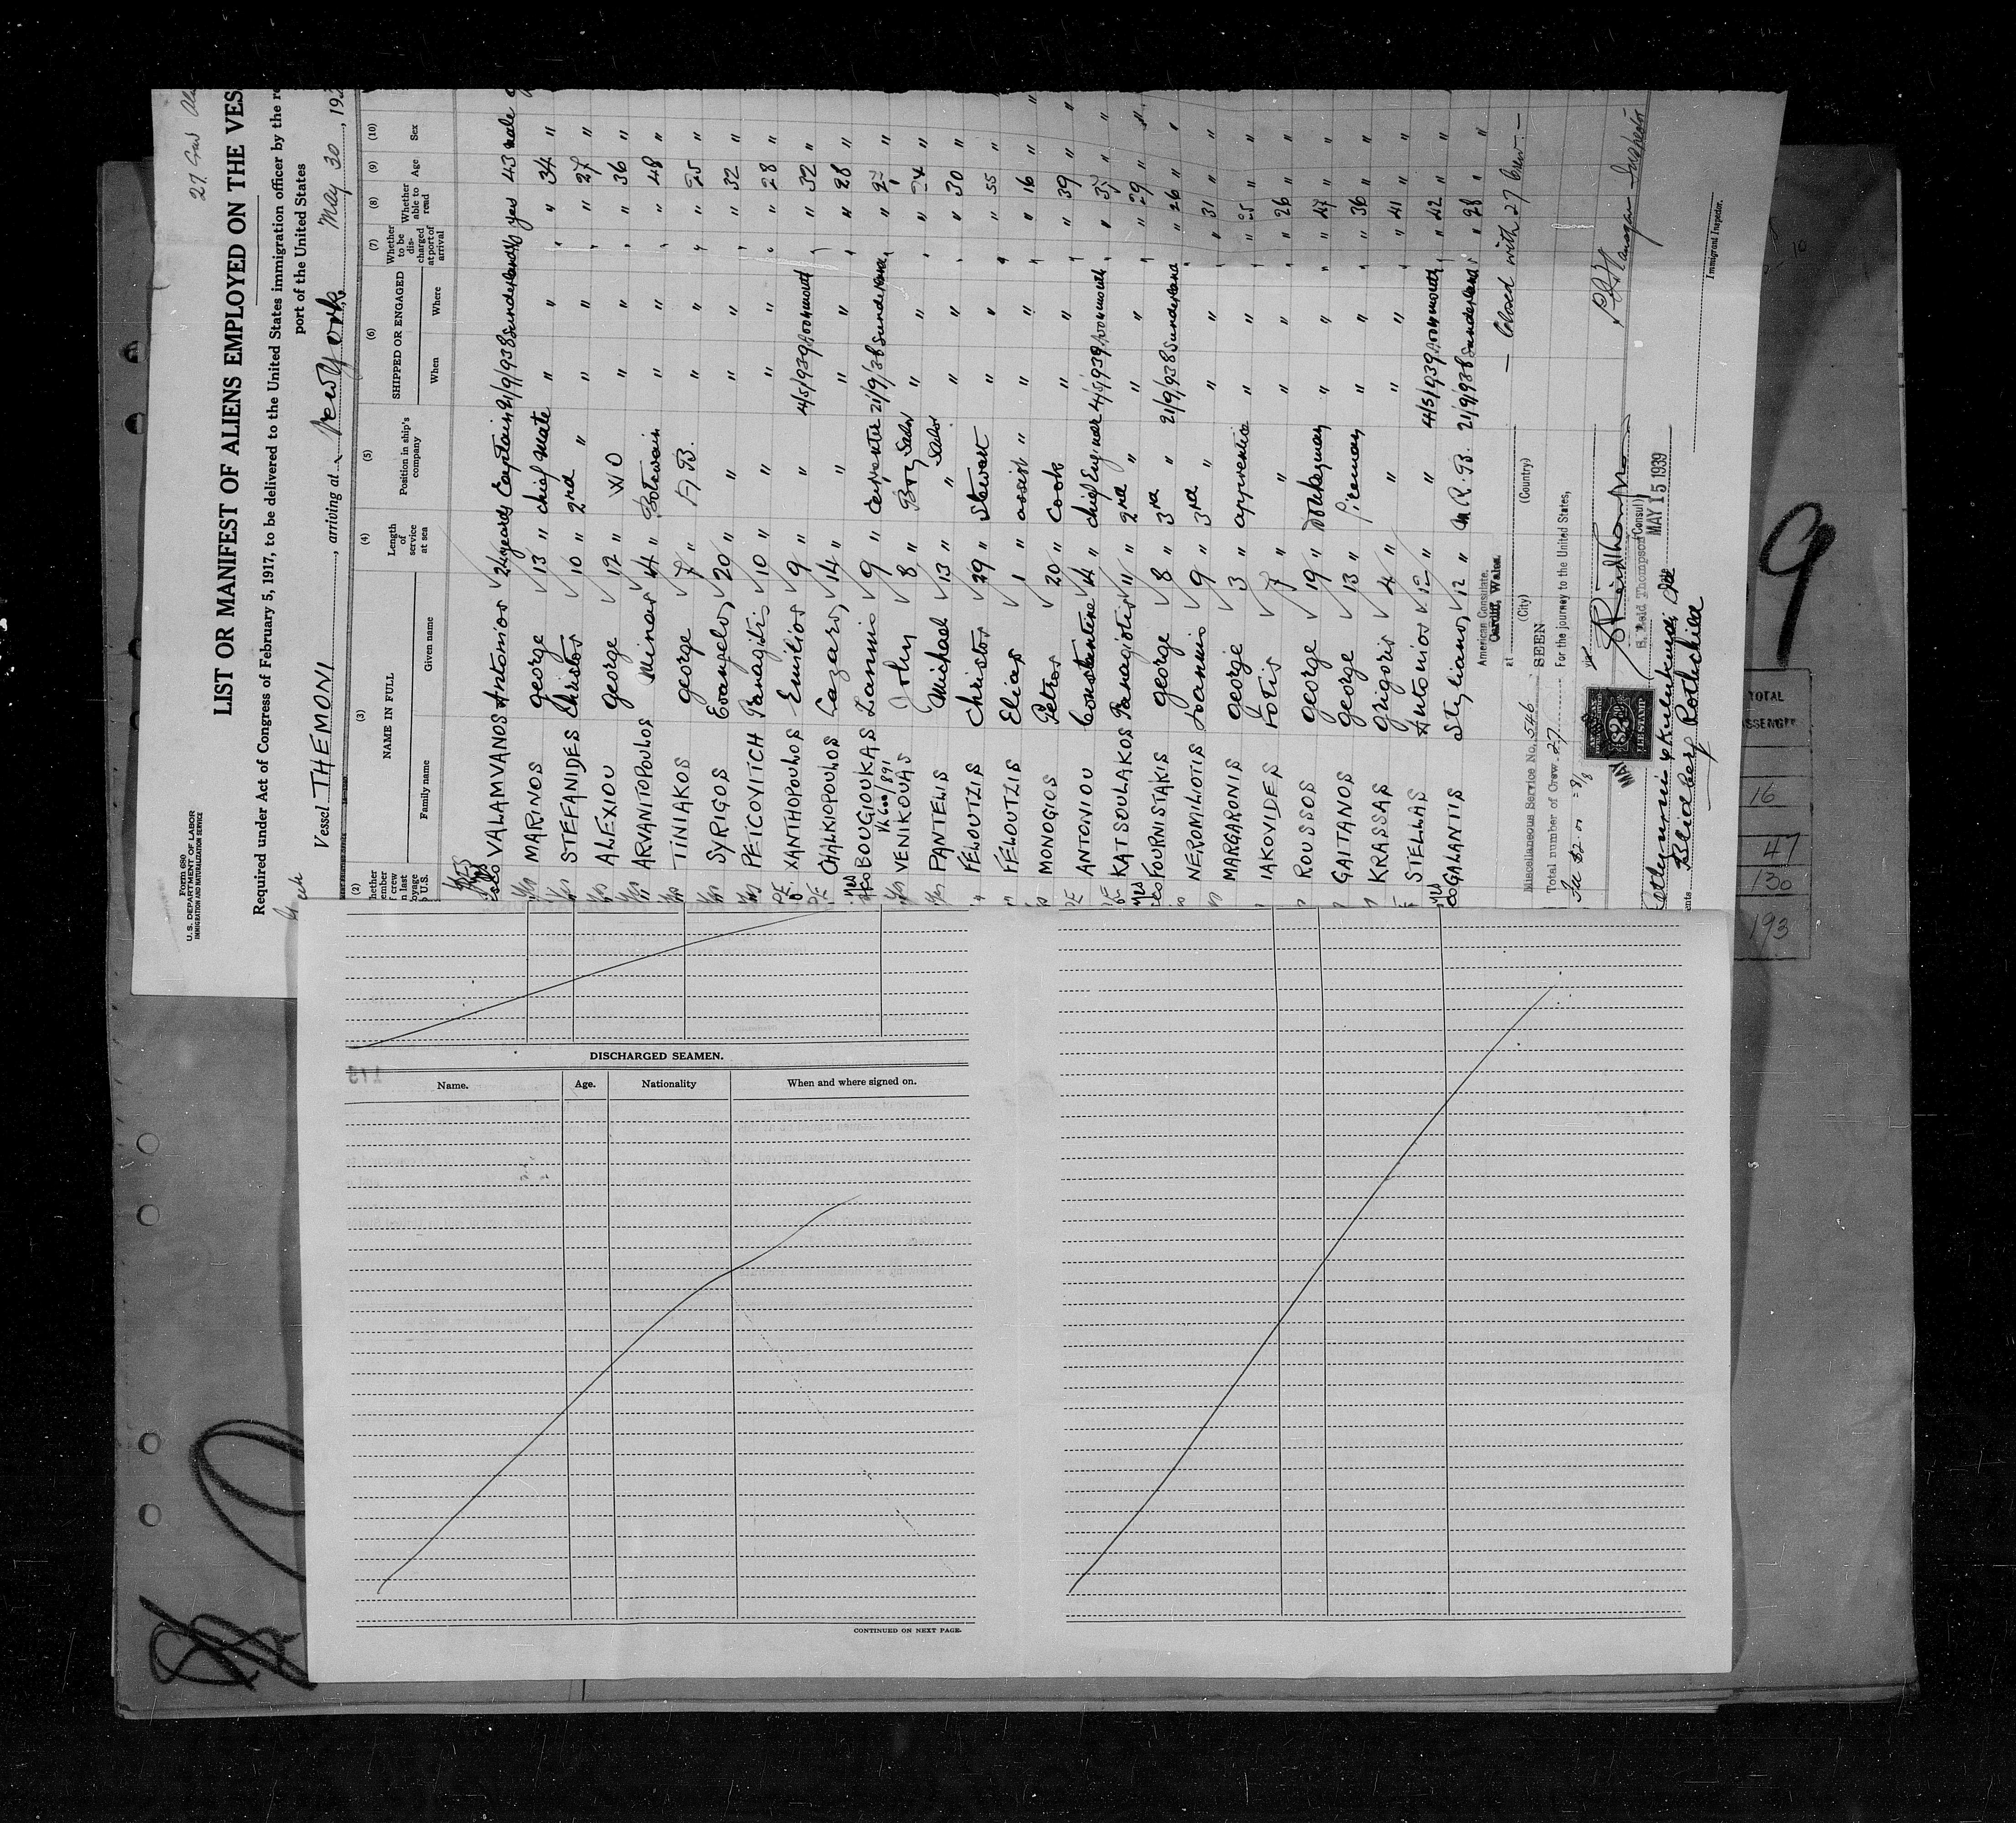 27 Crew
Form 680
U. S. DEPARTMENT OF LABOR
IMMIGRATION AND NATURALIZATION SERVICE
LIST OR MANIFEST OF ALIENS EMPLOYED ON THE VES
Required under Act of Congress of February 5, 1917, to be delivered to the United States immigration officer by the re
port of the United States
Vessel THEMONI, arriving at New York May 30, 193
(2) (3) (4) (5) (6) (7) (8) (9) (10)
NAME IN FULL Length of service at sea Position in ship's company SHIPPED OR ENGAGED Whether to be discharged at port of arrival Whether able to read Age Sex
Family name Given name When Where
VALAMVANOS Antonios 24 years Captain 21/9/938 Sunderland yes 43 male
MARINOS george 13 " chief Mate " " " " 34 "
STEFANIDES Christos 10 " 2nd " " " " " 27 "
ALEXIOU george 12 " W O " " " " 36 "
ARVANITOPOULOS Minas 24 " Botswain " " " " 48 "
TINIAKOS george 7 " A B. " " " " 25 "
SYRIGOS Evangelos 20 " " " " " " 32 "
PETICOVITCH Panagiotis 10 " " " " " " 28 "
XANTHOPOULOS Emilios 9 " " 4/5/939 Avonmouth " " 32 "
CHALKIOPOULOS Lazaros 14 " " " " " " 28 "
BOUGIOUKAS Ioannis 9 " Carpenter 21/9/38 Sunderland " "
V/L 600/891
VENIKOUAS John 8 " Boy Sailor " " " "
PANTELIS Michael 13 " " Sailor " " " " 30 "
FELOUTZIS Christos 29 " Stewart " " " " 55 "
FELOUTZIS Elias 1 " assist " " " " " 16 "
MONOGIOS Petros 20 " Cook " " " " 39 "
ANTONIOU Constantine 14 " chief Engineer 4/5/939 Avonmouth " " "
KATSOULAKOS Panagiotis 11 " 2nd " " " " " 29 "
FOURNISTAKIS george 8 " 3rd " 21/9/938 Sunderland " 26 "
NEROMILIOTIS Ioannis 9 " 3rd " " " " " 31 "
MARGARONIS george 3 " apprentice " " " " 25 "
IAKOVIDES Fotis 7 " " " " " " 26 "
ROUSSOS george 19 " Donkeyman " " " " 47 "
GAITANOS george 13 " Fireman " " " " 36 "
KRASSAS grigoris 4 " " " " " " 41 "
STELLAS Antonios 12 " " 4/5/939 Avonmouth " " 42 "
GALANTIS Stylianos 12 " M R. B. 21/9/938 Sunderland " " 28 "
— Closed with 27 Crew —
American Consulate,
Cardiff, Wales.
at (City) (Country)
Miscellaneous Service No. 546 SEEN
Total number of Crew 27 For the journey to the United States,
Fee $2.00 = 8/8
S. Reid Thompson (Consul)
MAY 15 1939
AMERICAN
$2
FEE STAMP
MAY
Inspector
Immigrant Inspector.
Blidberg Rothchild
9
TOTAL
16
47
130
193
DISCHARGED SEAMEN.
Name. Age. Nationality When and where signed on.
CONTINUED ON NEXT PAGE.